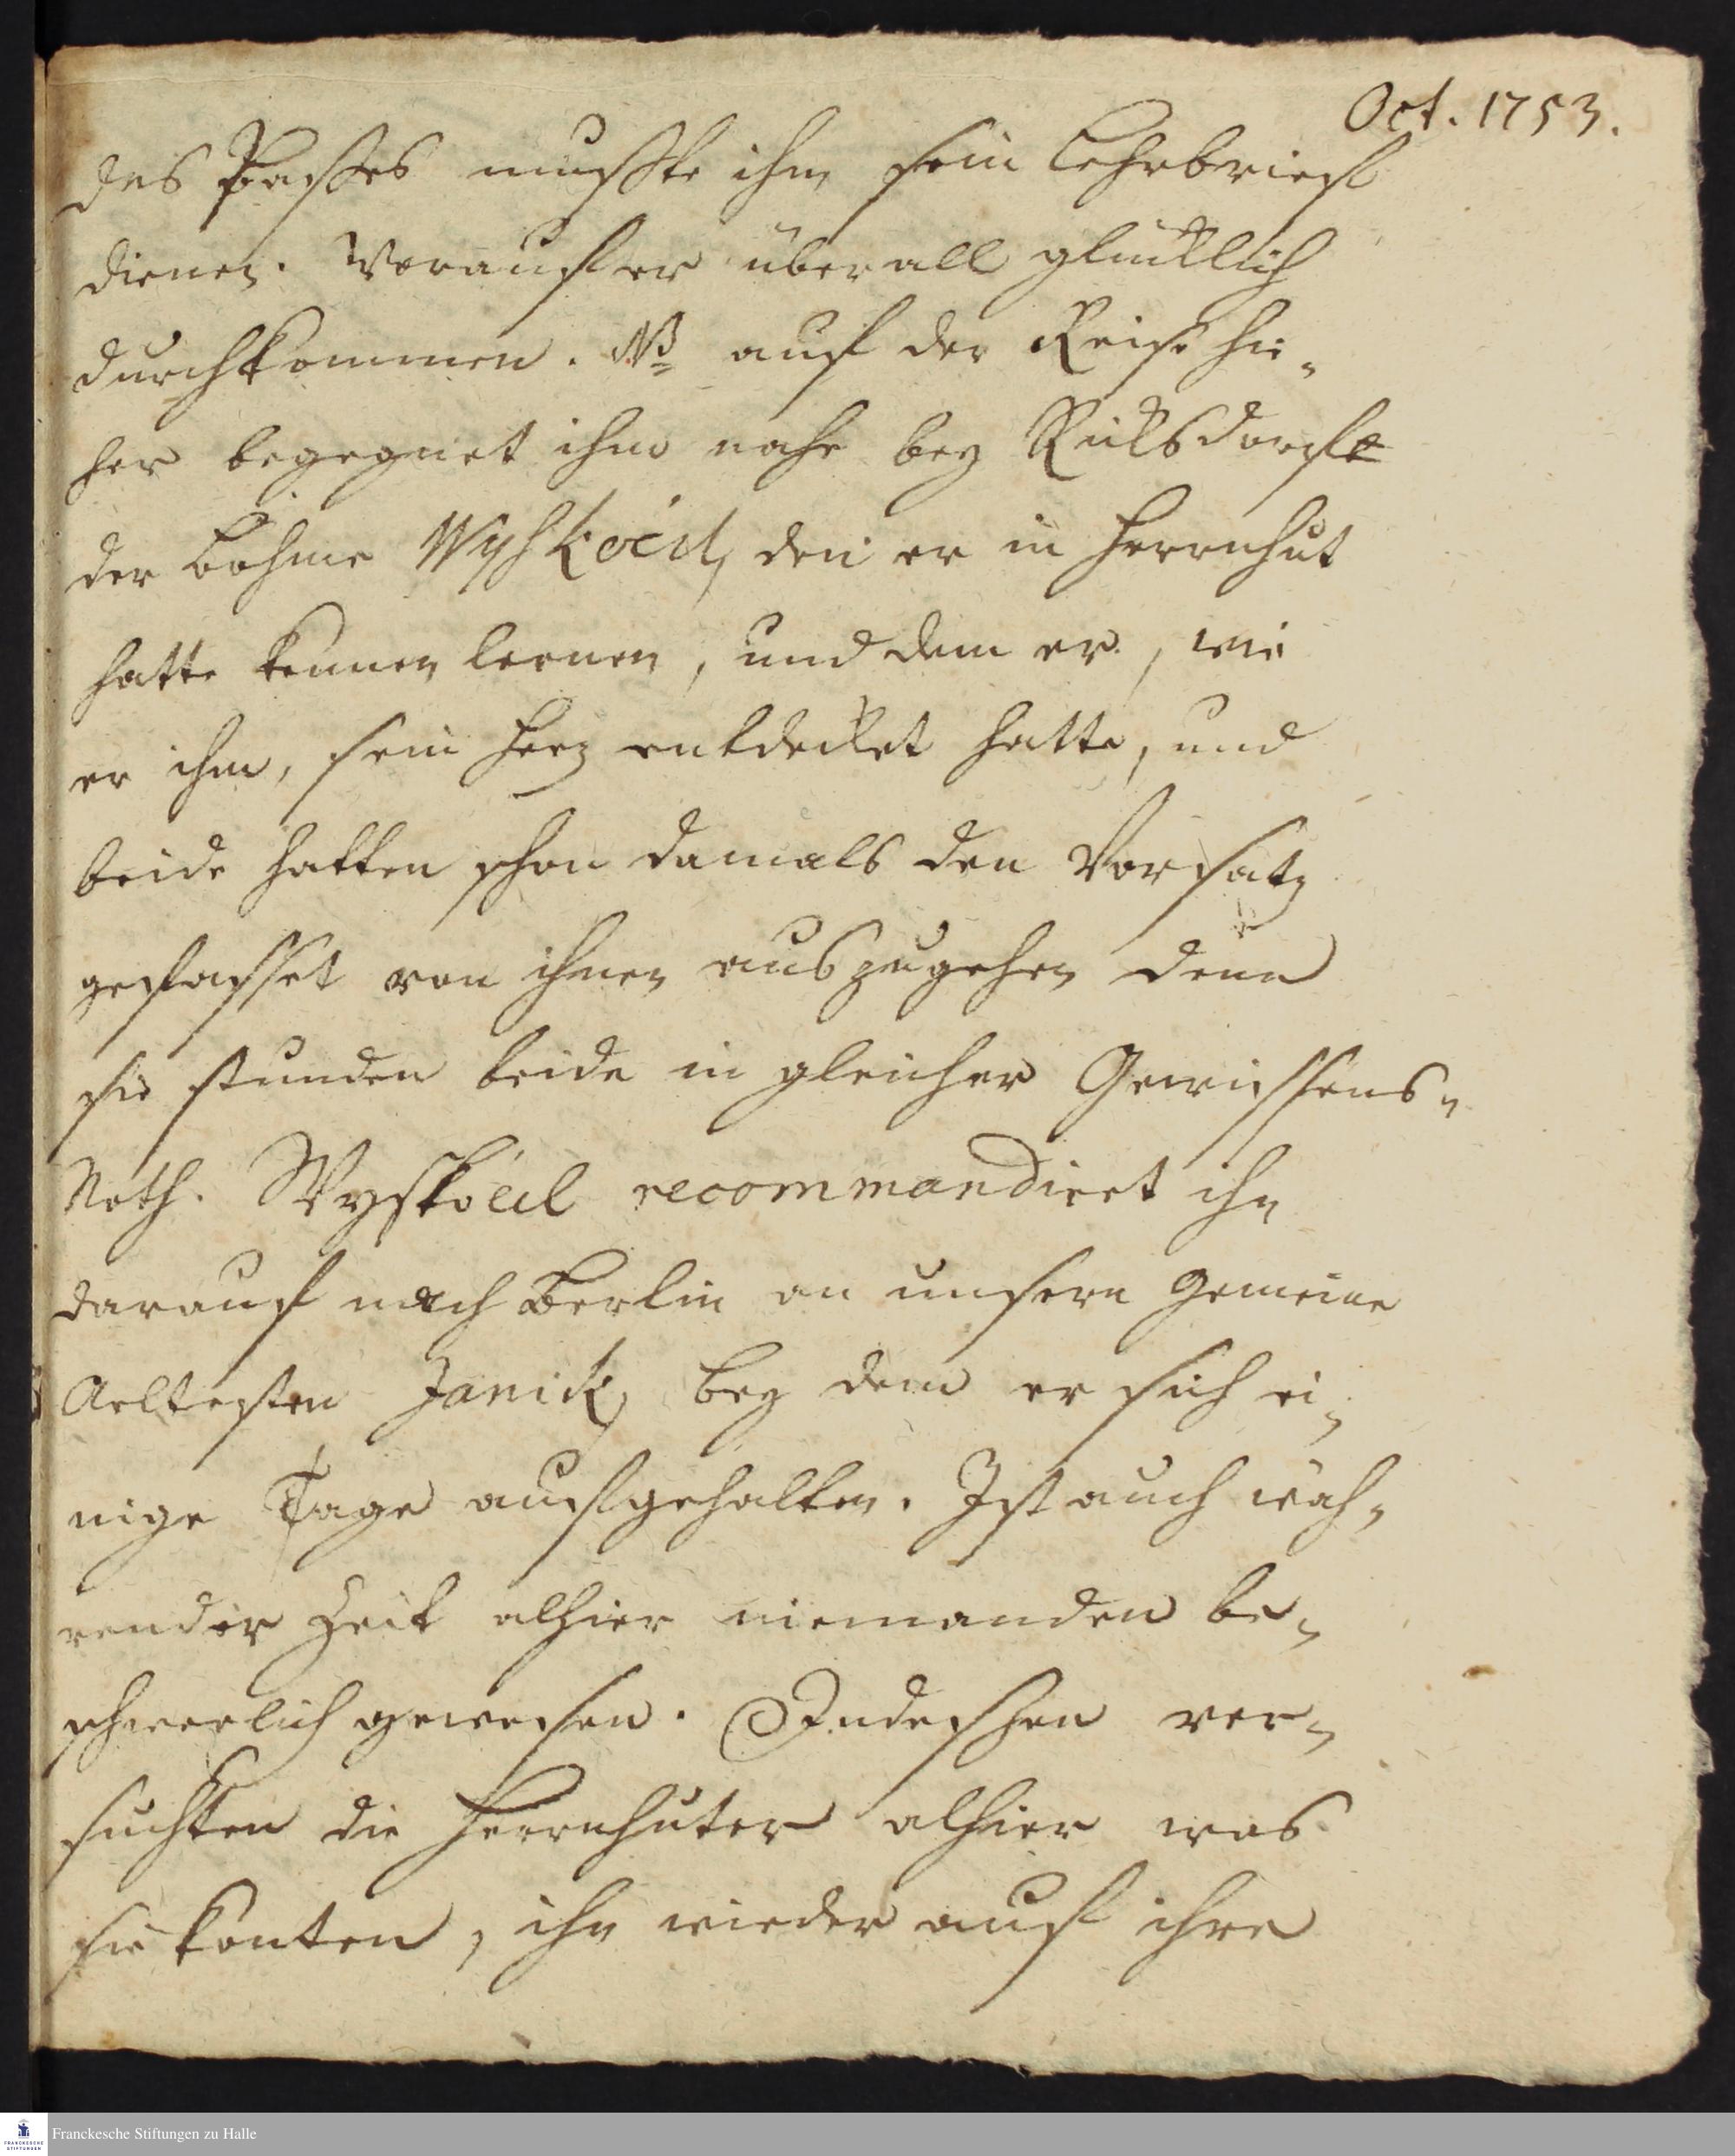 Oct. 1753.
des Passes musste ihm sein Lehrbrieff
dienen. Worauf er überall glücklich
durchkommen. NB auf der Reise hie-
her begegnet ihm nahe bey Ricksdorff
der Böhme Wyskočil, den er in Herrnhut
hatte kennen lernen, und dem er, wie
er ihm, sein Herz entdecket hatte, und
beide hatten schon damals den Vorsatz
gefasset von ihnen auszugehen denn
sie stunden beide in gleicher Gewissens-
Noth. Wyskočil recommandiert ihn
darauf nach Berlin an unsern Gemeine
Aeltesten Janik, bey dem er sich ei-
nige Tage aufgehalten. Ist auch wäh-
render Zeit alhier niemanden be-
schwerlich gewesen. Indessen ver-
suchten die Herrnhuter alhier was
sie konten, ihn wieder auf ihre
Franckesche Stiftungen zu Halle